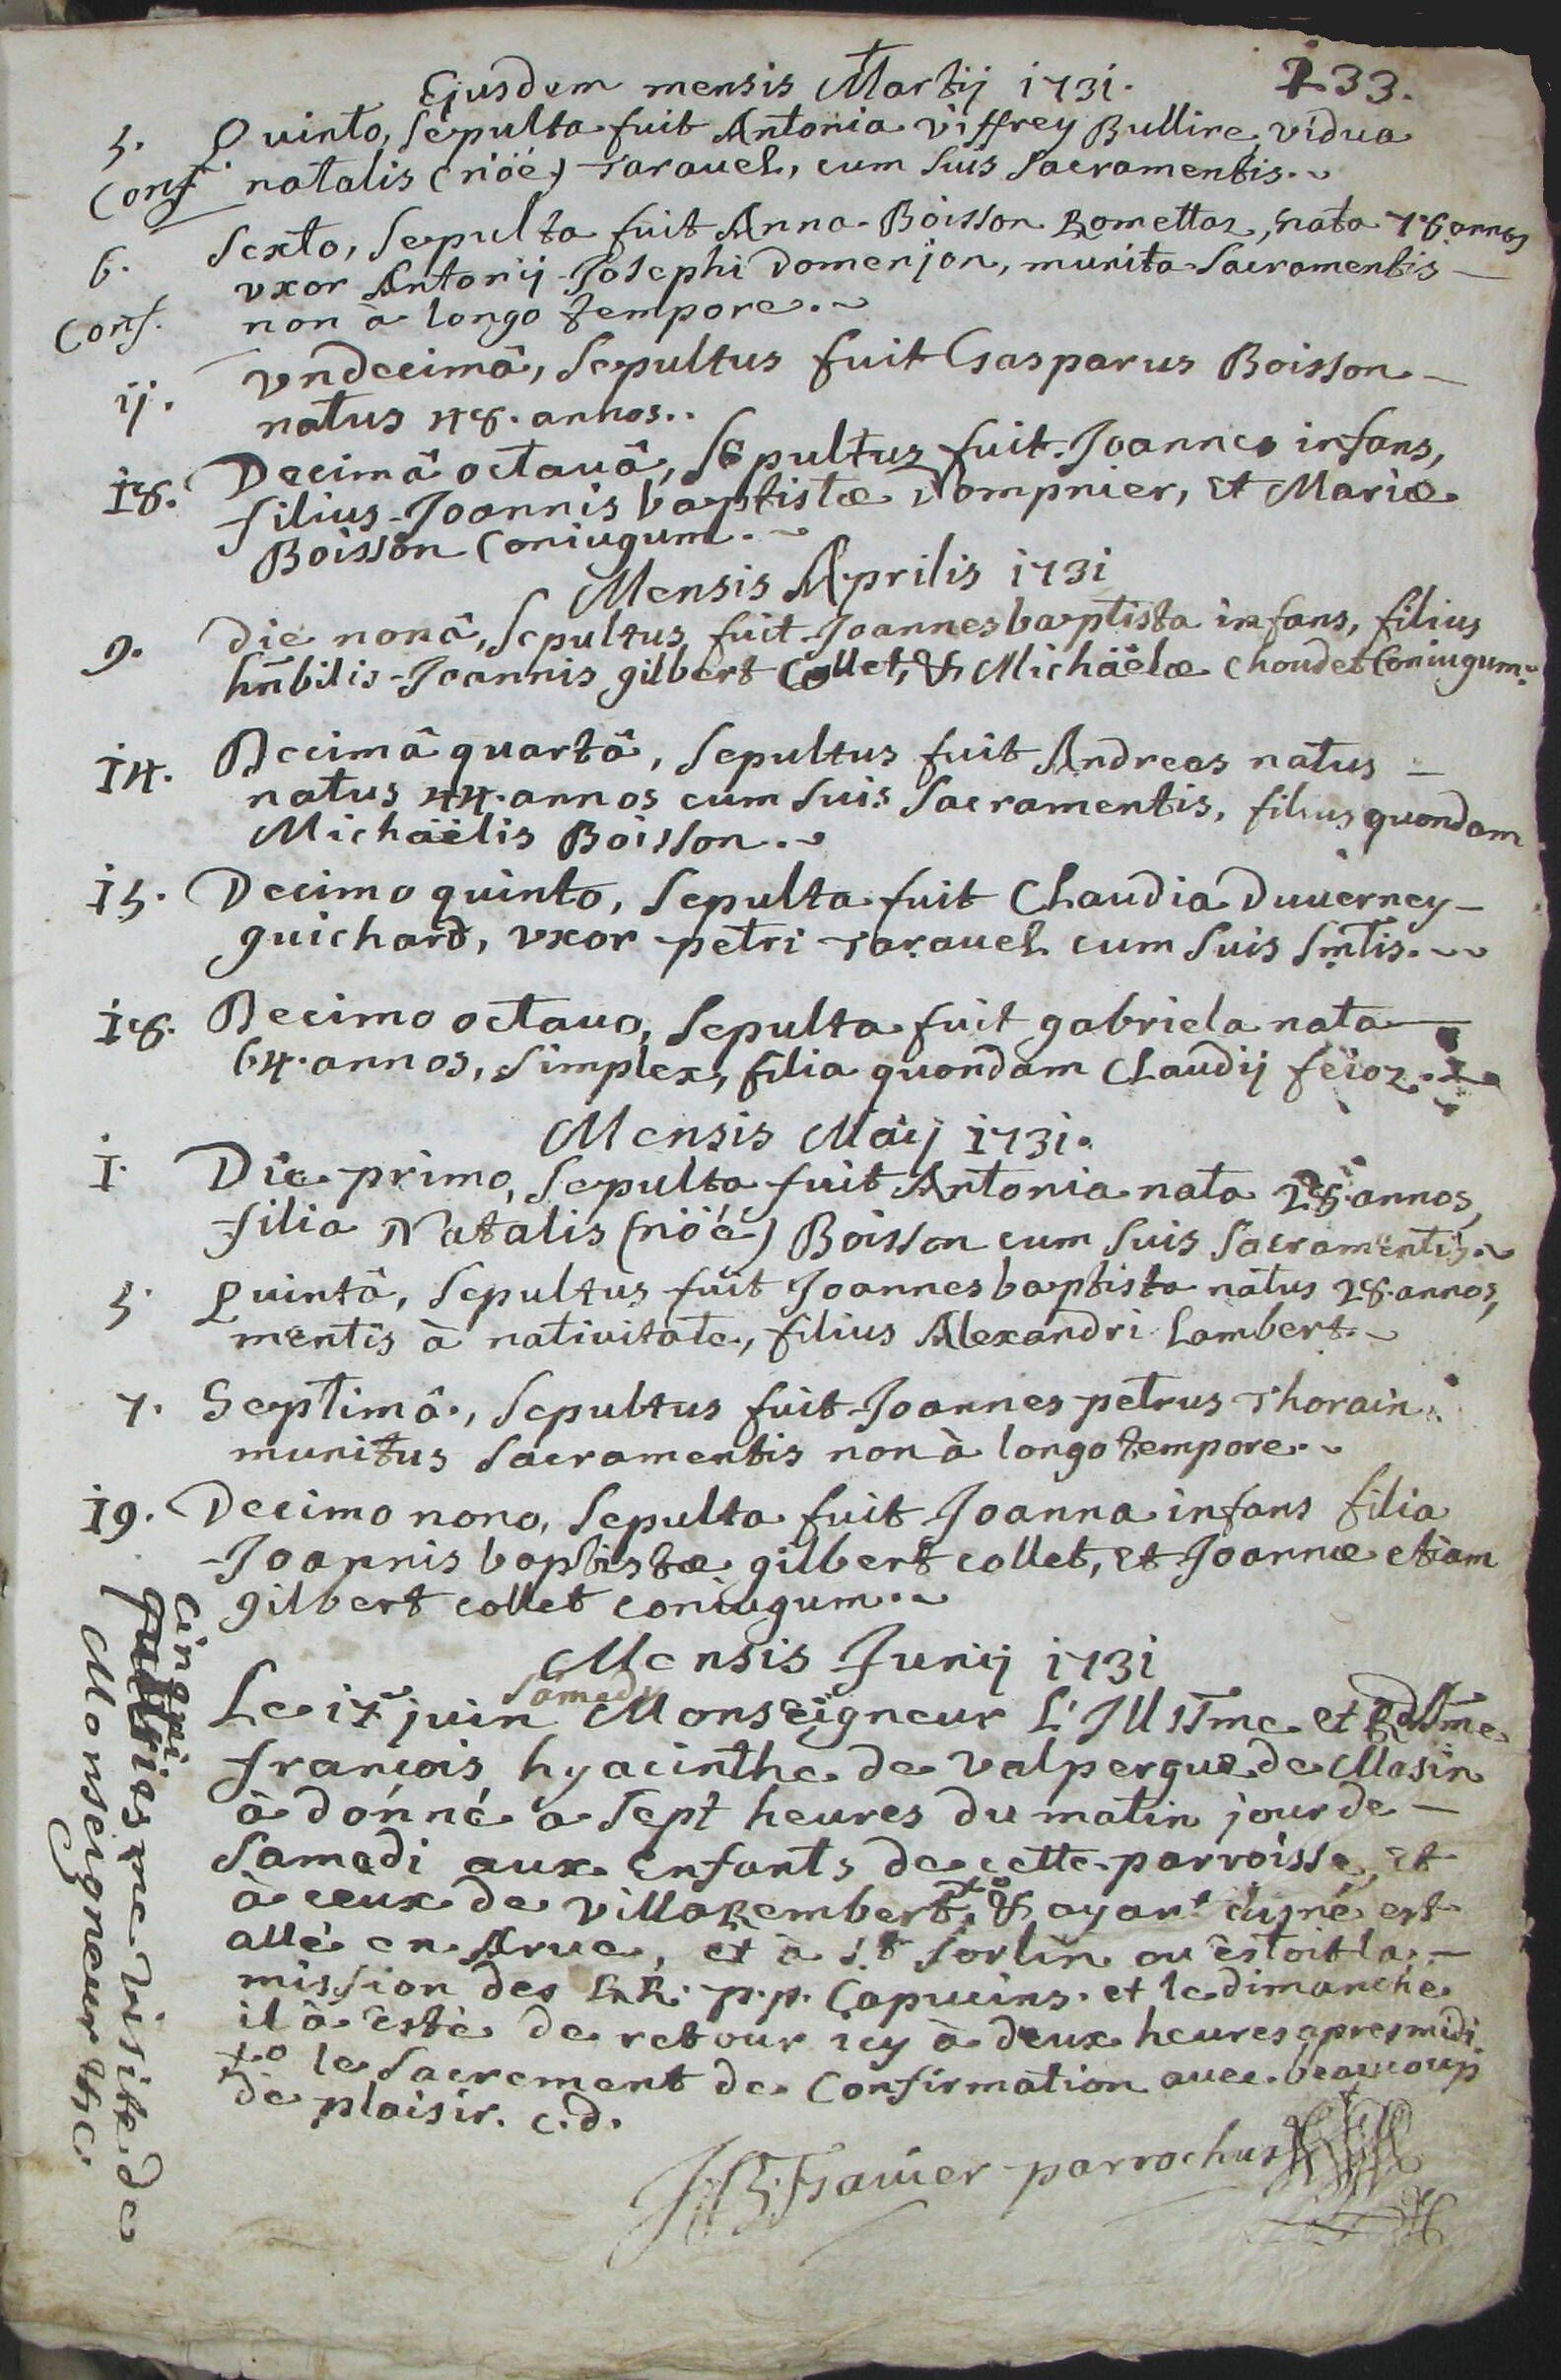 Ejusdem mensis Martij 1731. 133.
5. Quinto, Sepulta fuit Antonia Viffrey Bullire, vidua
Conf. natalis (nöé) rarauel, cum suis Sacramentis.
6. Sexto, Sepulta fuit Anna Boisson Romettaz, nata 76 annos
uxor Antonij Josephi Domenjon, munita Sacramentis
Conf. non à longo tempore.
ij. Vndecimâ, Sepultus fuit Gasparus Boisson
natus 48. annos..
18. Decimâ octauâ, Sepultus fuit Joannes infans,
filius Joannis baptistæ Dompnier, et Mariæ
Boisson Coniugum.
Mensis Aprilis 1731
9. die nonâ, Sepultus fuit Joannesbaptista infans, filius
hn̄bilis Joannis gilbert Collet, & Michäelæ choudet Coniugum.
14. Decimâ quartâ, Sepultus fuit Andreas natus
natus 44. annos cum suis Sacramentis, filius quondam
Michäelis Boisson.
15. Decimo quinto, Sepulta fuit Claudia Duuerney
guichard, vxor petri rarauel cum suis Smtis.
18. Decimo octauo, Sepulta fuit gabriela nata
64. annos, simplex, filia quondam Claudij feïoz.
Mensis Maij 1731.
1. Die primo, Sepulta fuit Antonia nata 28. annos,
filia Natalis (nöé) Boisson cum suis Sacramentis.
5. Quintâ, Sepultus fuit Joannesbaptista natus 28. annos,
mentis à natiuitate, filius Alexandri Lambert.
7. Septimâ, Sepultus fuit Joannes petrus Thorain.
munitus Sacramentis non à longo tempore.
19. Decimo nono, Sepulta fuit Joanna infans filia
Joannis baptistæ gilbert collet, et Joannæ etiam
gilbert collet coniugum.
Mensis Junij 1731
Samedy
Le 17 juin Monseigneur L'Illssme et Rdssme
françois hyacinthe de Valpergue de Masin
à donné a sept heures du matin jour de
Samedi aux enfants de cette parroisse, et
à ceux de VillaRembert, +o & ayant digné est
allé en Arue, et à St Sorlin ou estoit la
mission des RR. p.p. Capucins. et le dimanche
il à esté de retour icy à deux heures apres midi.
+o le Sacrement de Confirmation auec beaucoup
de plaisir. c.d.
parrochus
Cinqui
esme visite de
Monseigneur &c